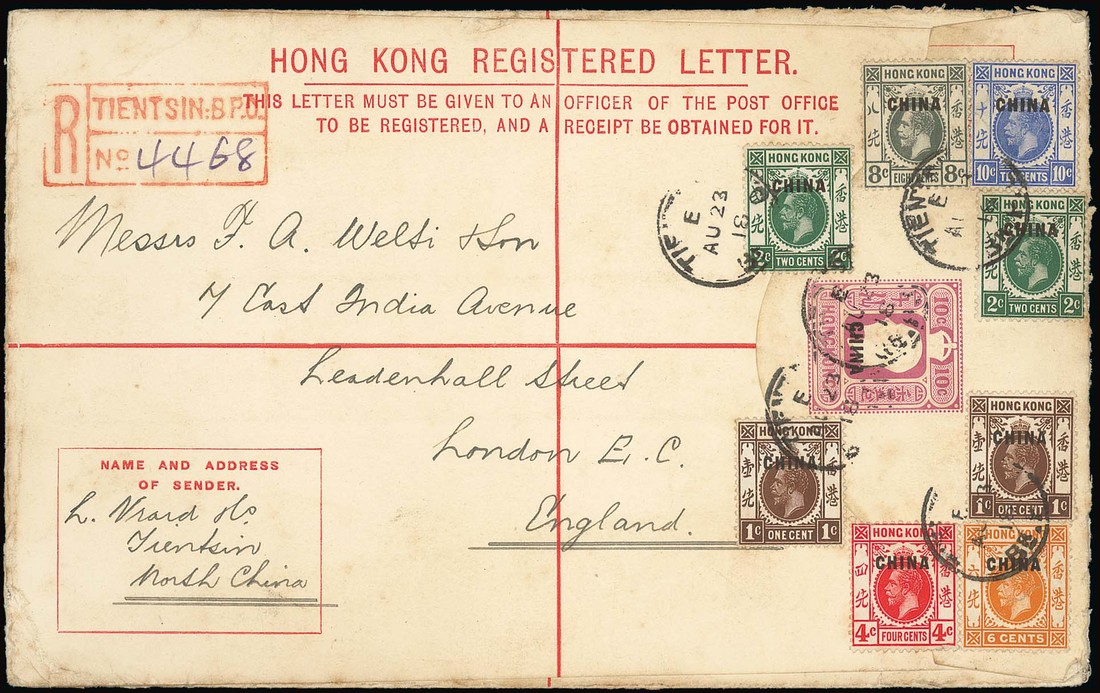 HONG KONG REGISTERED LETTER.
THIS LETTER MUST BE GIVEN TO AN OFFICER OF THE POST OFFICE
TO BE REGISTERED, AND A RECEIPT BE OBTAINED FOR IT.
R
TIENTSIN:B.P.O.
No 4468
Messrs F. A. Welti & Son
7 East India Avenue
Leadenhall Street
London E.C.
England.
NAME AND ADDRESS
OF SENDER.
L. Vrard & Co
Tientsin
North China
HONG KONG
CHINA
八先
香港
8c EIGHT CENTS 8c
HONG KONG
CHINA
十先
香港
10c TEN CENTS 10c
HONG KONG
CHINA
香港
2c TWO CENTS 2c
E
AU 23
18
HONG KONG
CHINA
先
香港
2c TWO CENTS 2c
HONG KONG
CHINA
10c
10c
HONG KONG
CHINA
壹先
香港
1c ONE CENT 1c
HONG KONG
CHINA
壹先
香港
1c ONE CENT 1c
HONG KONG
CHINA
四先
香港
4c FOUR CENTS 4c
HONG KONG
CHINA
六先
香港
6 CENTS